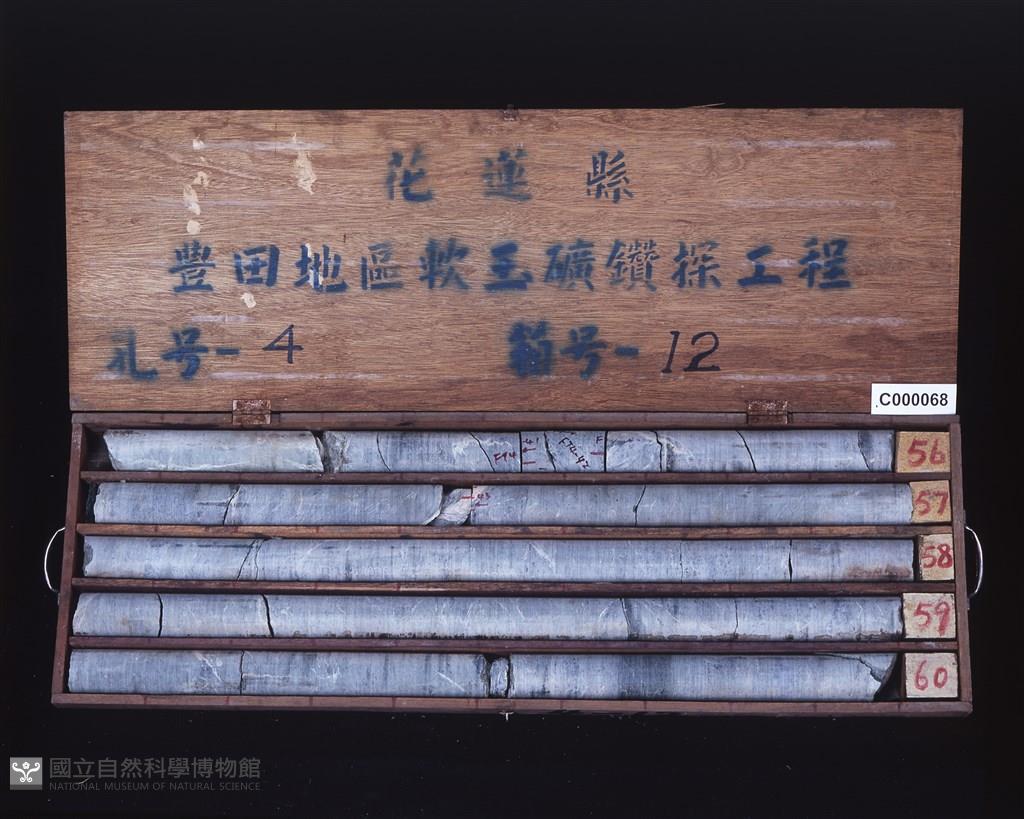 花蓮縣
豐田地區軟玉礦鑽探工程
孔号-4 箱号-12
C000068
F74 41 F74-42 F
56
43
57
58
59
60
國立自然科學博物館
NATIONAL MUSEUM OF NATURAL SCIENCE